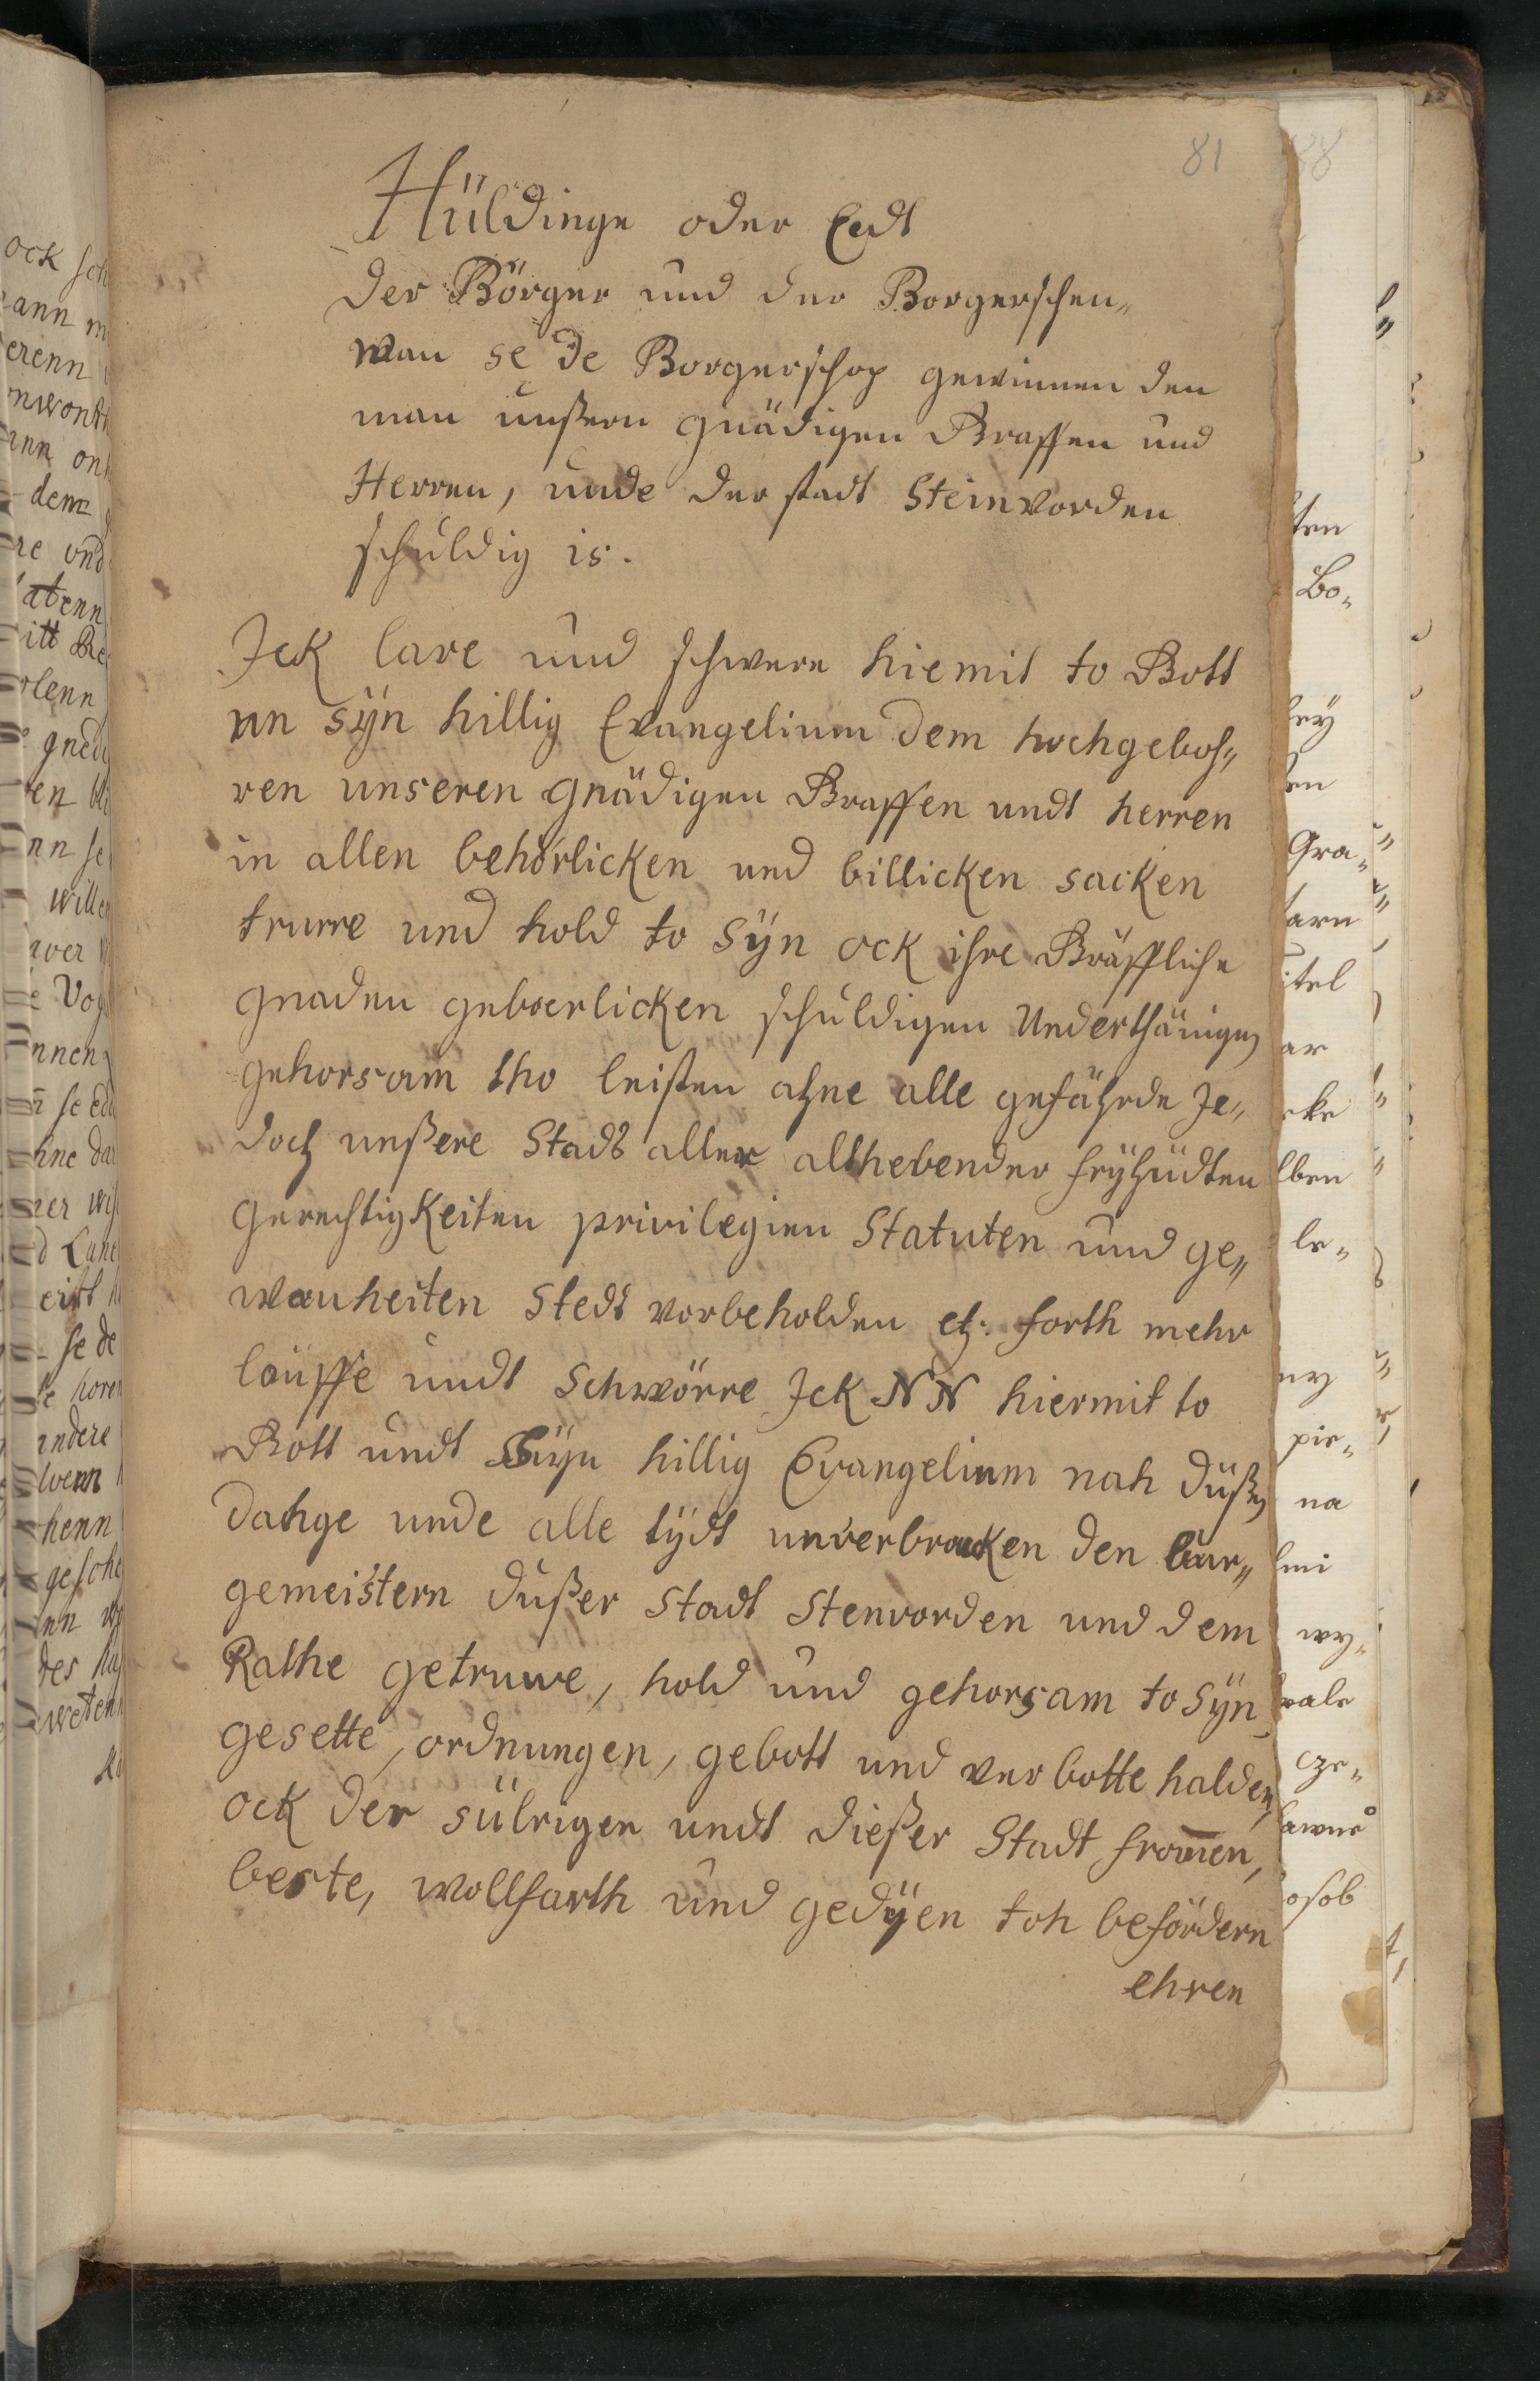 81
Hüldinge oder Eedt
der Börger und der Borgerschen„
wan se de Borgerschop gewinnen den
man unßern gnädigen Graffen und
Herren, unde der stadt Steinvorden
schuldig is.
Ick lave und schwere hiemit to Gott
un syn hillig Evangelium dem hochgeboh„
ren unseren gnädigen Graffen undt herren
in allen behörlicken und billicken sacken
truwe und hold to syn ock ihre Gräffliche
gnaden geboerlicken schuldigen Underthänigen
gehorsam tho leisten ahne alle gefährde Je„
doch unßere Stadt aller althebender fryhüdten
gerechtigkeiten privilegien Statuten und ge„
wanheiten stedt vorbeholden etc. forth mehr
läuffe undt Schwörre Ick NN hiermit to
Gott undt Syn hillig Evangelium nah düßen
dahge unde alle tydt unverbrocken den bur„
gemeistern dußer Stadt Stenvorden und dem
Rathe getruwe, hold und gehorsam to syn
gesette, ordnungen, gebott und verbotte halden,
ock der sülvigen undt dießer Stadt from̄en,
beste, wollfarth und gedyen toh befördern
ehren